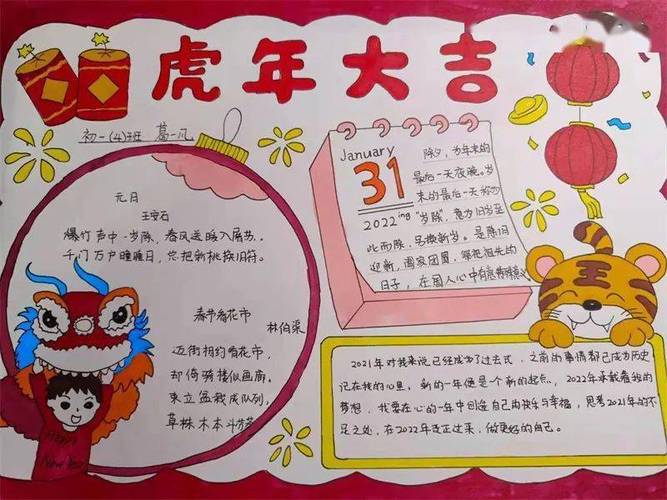 虎年大吉
初一(4)班 葛一凡
元日
王安石
爆竹声中一岁除,春风送暖入屠苏。
千门万户瞳瞳日,总把新桃换旧符。
春节看花市
林伯渠
迈街相约看花市,
却倚骑楼似画廊。
束立盆栽成队列,
草株木本斗芬
January
31
2022
除夕,为年末的
最后一天夜晚。岁
末的最后一天称为
"岁除,意为旧岁至
此而除,另换新岁。是除旧
迎新,阖家团圆,祭祀祖先的
日子,在国人心中有意义
2021年对我来说已经成为了过去式,之前的事情都已成为历史
记在我的心里,新的一年便是个新的起点,2022年承载着我的
梦想,我要在心的一年中创造自己的快乐与幸福,思考2021年的不
足之处,在2022年改正过来,做更好的自己。
Happy
New Year